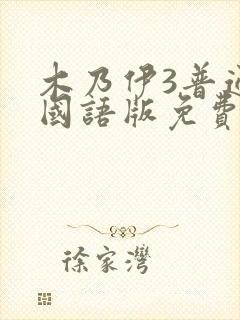 木乃伊3普通
國語版免費
徐家灣